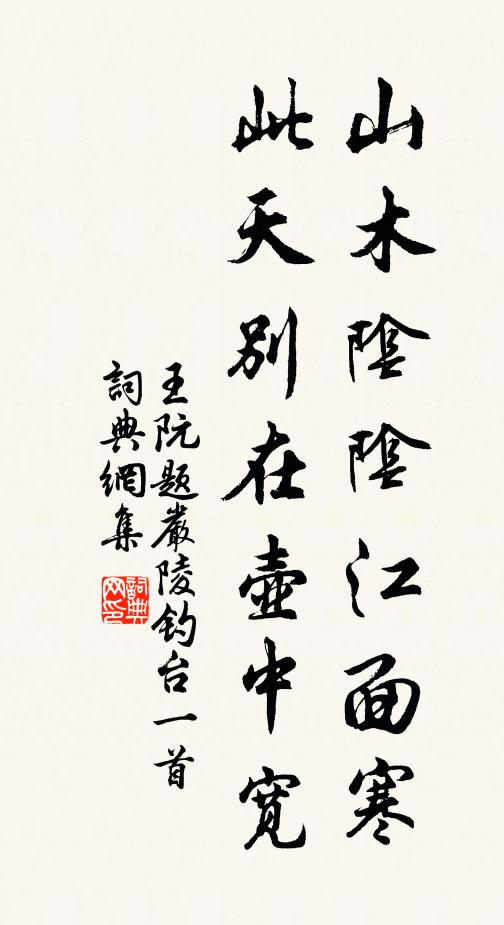 山木陰陰江面寒
此天别在壺中寬
王阮题嚴陵钓台一首
詞典網集
詞典网印